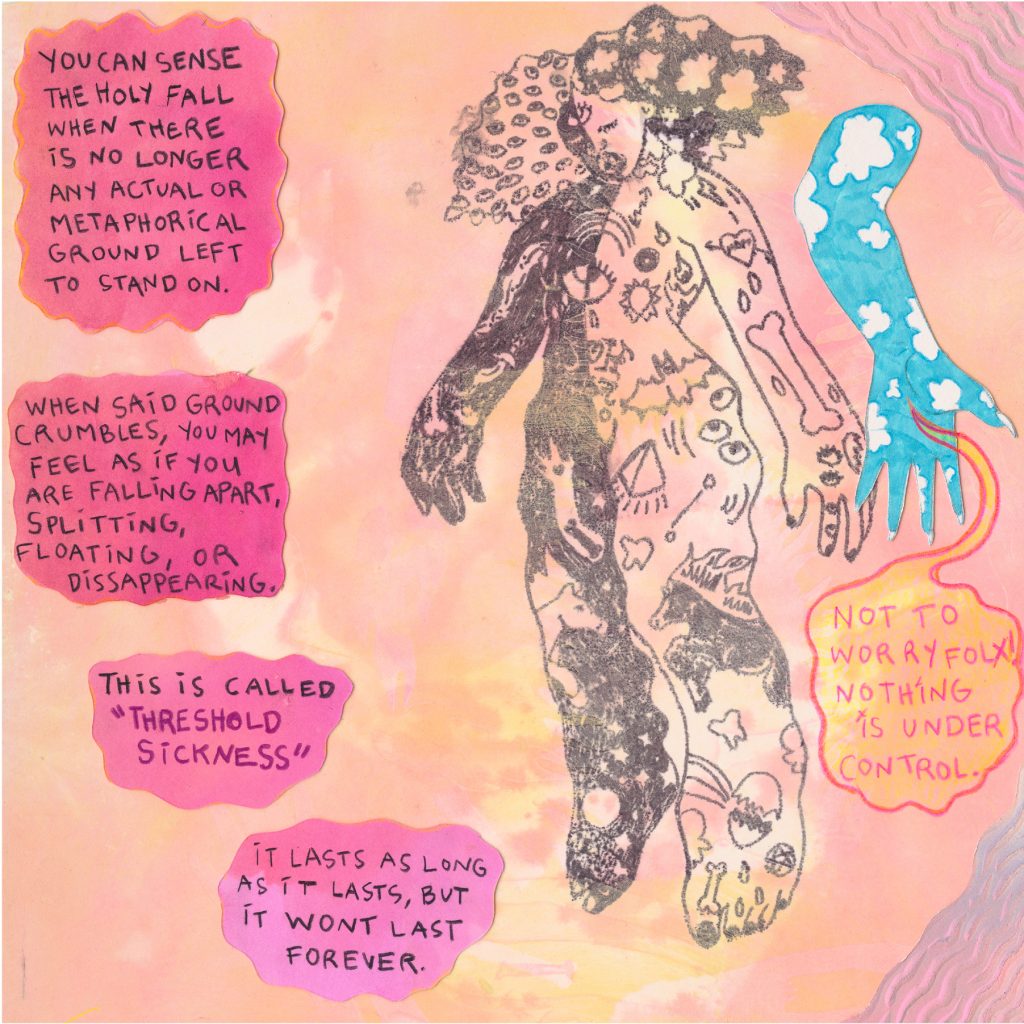 YOU CAN SENSE
THE HOLY FALL
WHEN THERE
iS NO LONGER
ANY ACTUAL OR
METAPHORICAL
GROUND LEFT
TO STAND ON.
WHEN SAiD GROUND
CRUMBLES, YOU MAY
FEEL AS iF YOU
ARE FALLiNG APART,
SPLiTTiNG,
FLOATiNG, OR
DiSSAPPEARiNG.
THiS iS CALLED
"THRESHOLD
SiCKNESS"
iT LASTS AS LONG
AS iT LASTS, BUT
iT WONT LAST
FOREVER.
NOT TO
WORRY FOLX!
NOTHiNG
iS UNDER
CONTROL.